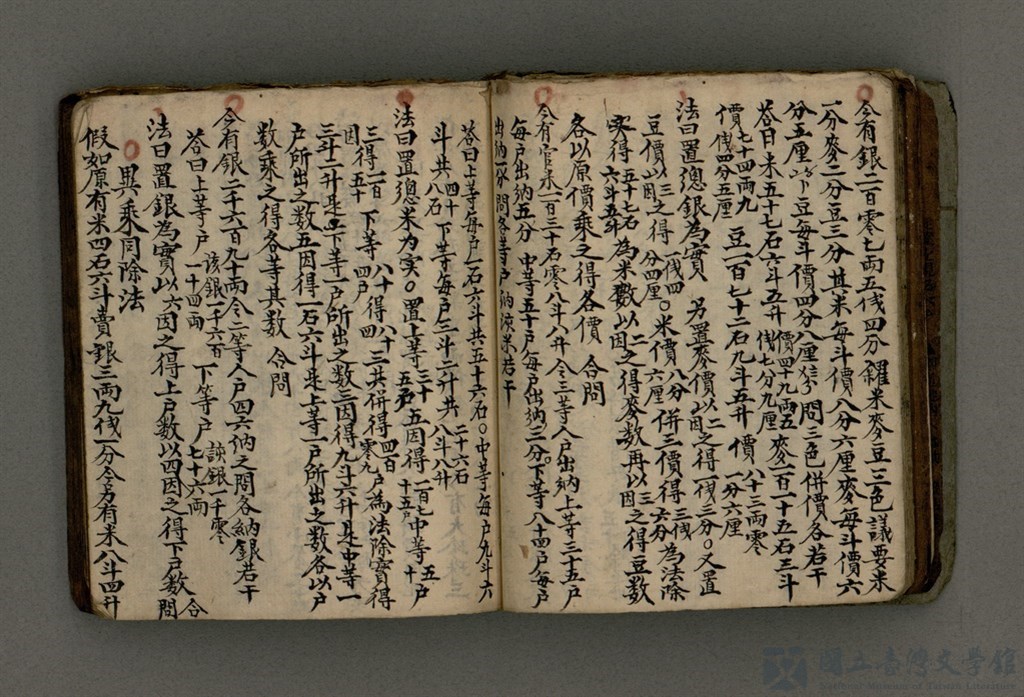 今有銀二百零七両五戔四分糴米麥豆三色議要米
一分麥二分豆三分其米每斗價八分六厘麥每斗價六
分五厘豆每斗價四分八厘問三色併價各若干
答曰米五十七石六斗五升 價四十九両五戔七分九厘 麥一百一十五石三斗
價七十四両九戔四分五厘 豆一百七十二石九斗五升 價八十三両零一分六厘
法曰置總銀為實 另置麥價以二因之得一戔三分○又置
豆價以三因之得一戔四分四厘○米價八分六厘併三價得三戔六分為法除
實得五十七石六斗五升為米數以二因之得麥數再以三因之得豆數
各以原價乘之得各價 合問
今有官米一百三十石零八斗八升令三等人戶出納上等三十五戶
每戶出納五分 中等五十戶每戶出納三分○下等八十四戶每戶
出納二分問各等戶納該米若干
答曰上等每戶一石六斗共五十六石○中等每戶九斗六
斗共四十八石 下等每戶三斗二升共二十六石八斗八升
法曰置總米为实○置上等三十五戶五因得一百七十五中等五十戶
三因得一百五十 下等八十四戶得八十四三共併得四百零九戶為法除實得
三斗二升是下等一戶所出之數三因得九斗六升是中等一
戶所出之數五因得一石六斗是上等一戶所出之數各以戶
數乘之得各等其數 合問
今有銀二千六百九十両令二等人戶四六納之問各納銀若干
答曰上等戶該銀一千六百一十四両 下等戶該銀一千零七十六両
法曰置銀為實以六因之得上戶數以四因之得下戶數合問
異乘同除法
假如原有米四石六斗賣銀三両九戔一分今另有米八斗四升
國立臺灣文學館
National Museum of Taiwan Literature